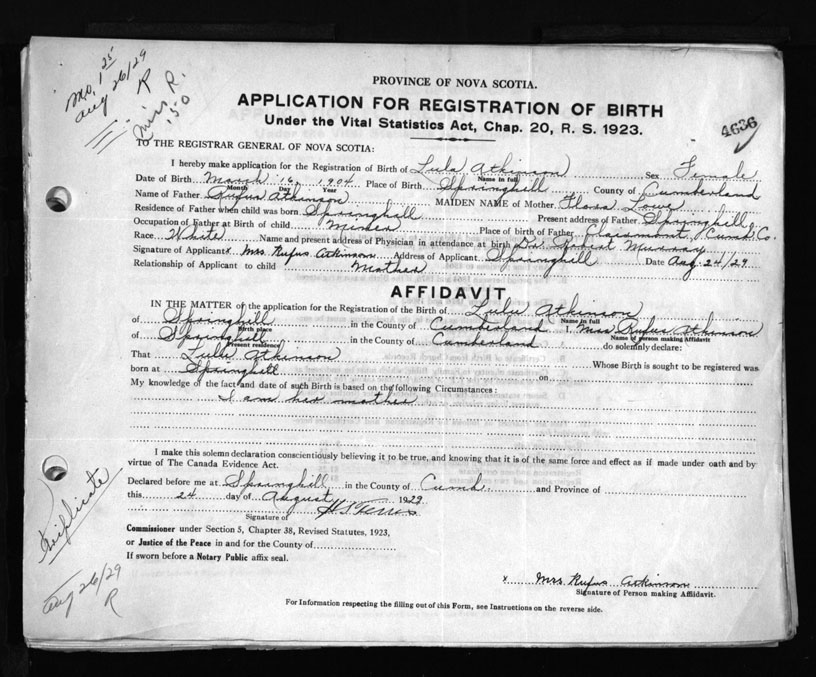 Mo. 1 25
Aug 26/29
R
Miss R.
.50
PROVINCE OF NOVA SCOTIA.
APPLICATION FOR REGISTRATION OF BIRTH
Under the Vital Statistics Act, Chap. 20, R. S. 1923.
4636
TO THE REGISTRAR GENERAL OF NOVA SCOTIA:
I hereby make application for the Registration of Birth of Lulu Atkinson Sex Female
Name in full
Date of Birth March 16, 1904 Place of Birth Springhill County of Cumberland
Month Day Year
Name of Father Rufus Atkinson MAIDEN NAME of Mother Flora Lowe
Residence of Father when child was born Springhill Present address of Father Springhill
Occupation of Father at Birth of child Miner Place of birth of Father Claremont, Cumb Co.
Race White Name and present address of Physician in attendance at birth Dr. Robert Murray
Signature of Applicant x Mrs Rufus Atkinson Address of Applicant Springhill Date Aug. 24/29
Relationship of Applicant to child Mother
AFFIDAVIT
IN THE MATTER of the application for the Registration of the Birth of Lulu Atkinson
Name in full
of Springhill in the County of Cumberland I, Mrs Rufus Atkinson
Birth place Name of person making Affidavit
of Springhill in the County of Cumberland do solemnly declare:
Present residence
That Lulu Atkinson Whose Birth is sought to be registered was
born at Springhill on
My knowledge of the fact and date of such Birth is based on the following Circumstances:
I am her mother
I make this solemn declaration conscientiously believing it to be true, and knowing that it is of the same force and effect as if made under oath and by
virtue of The Canada Evidence Act.
Declared before me at Springhill in the County of Cumb and Province of
this 24 day of August 1929
Signature of
Commissioner under Section 5, Chapter 38, Revised Statutes, 1923,
or Justice of the Peace in and for the County of
If sworn before a Notary Public affix seal.
Triplicate
Aug 26/29
R
x Mrs Rufus Atkinson
Signature of Person making Affidavit.
For Information respecting the filling out of this Form, see Instructions on the reverse side.